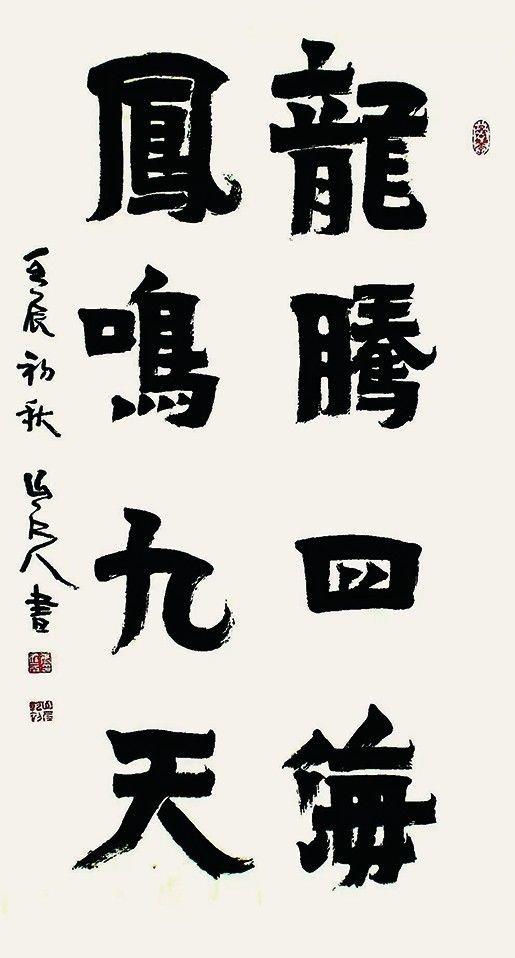 龍騰四海
鳳鳴九天
壬辰初秋 人書